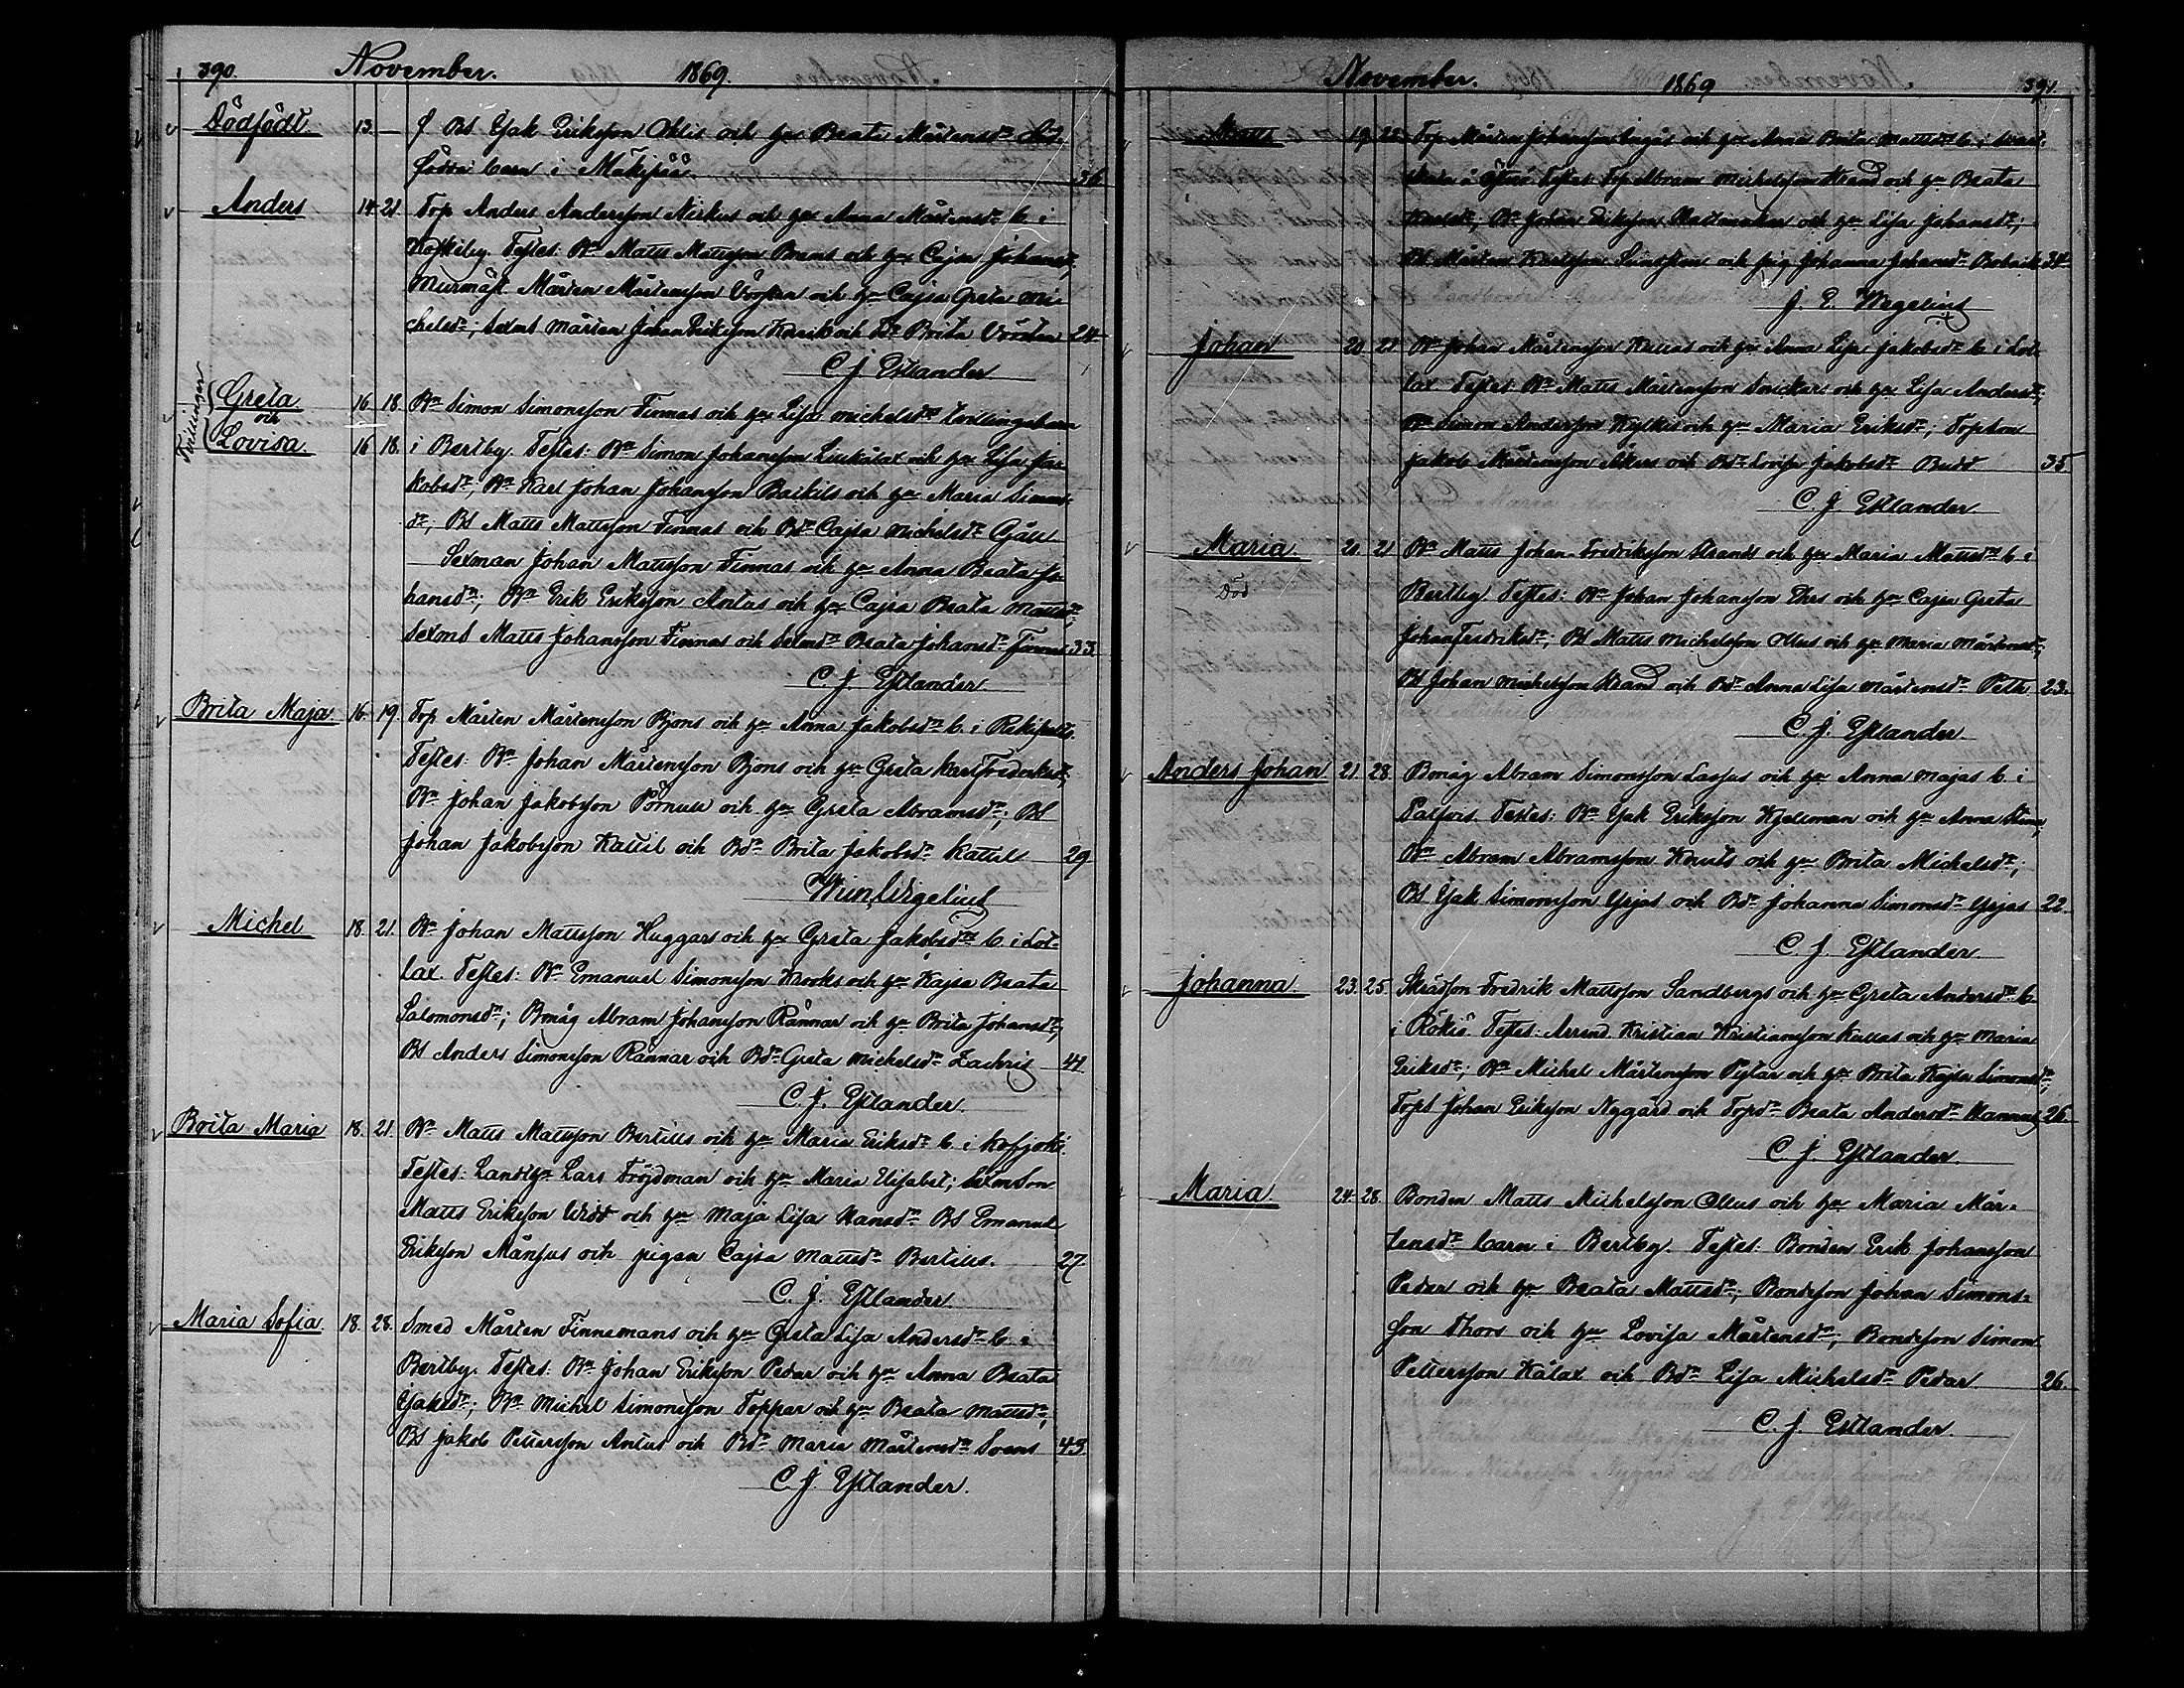 390. November. 1869.
Dödfödt 13. — Bs Isak Eriksson Ohlis och hu Beata Mårtensdr död-
födda barn i Mäkipää. 36
Anders 14 21 Torp Anders Andersson Niskus och hu Anna Mårtensdr b. i
Koskeby. Testes: Bn Matts Mattsson Brens och hu Cajsa Johansdr;
Murmäst. Mårten Mårtensson Vörtan och hu Cajsa Greta Mi-
chelsdr; Mårten Johan Eriksson och Brita Vörtan 24
C J Estlander
Tvillingar
Greta 16 18. Bn Simon Simonsson Finnas och hu Lisa Michelsdr tvillingebarn
och
Lovisa. 16 18. i Bertby. Testes: Bn Simon Johansson Liukälax och hu Lisa Ja-
kobsdr; Bn Karl Johan Johansson Backils och hu Maria Simons-
dr; Bs Matts Mattsson Finnas och Bdr Cajsa Michelsdr Gäll
Sexman Johan Mattsson Finnas och hu Anna Beata Jo-
hansdr; Bn Erik Eriksson Antus och hu Cajsa Beata Mattsdr;
Sexms Matts Johansson Finnas och Sexmdr Beata Johansdr Finnas 33.
C. J. Estlander.
Brita Maja. 16. 19. Torp Mårten Mårtensson Bjons och hu Anna Jakobsdr b. i Rekipelto.
Testes: Bn Johan Mårtensson Bjons och hu Greta Karl Fredriksdr;
Bn Johan Jakobsson Pörnull och hu Greta Abramsdr; Bs
Johan Jakobsson Kattil och Bdr Brita Jakobsdr Kattil 29
Wegelius
Michel 18. 21. Bn Johan Mattsson Huggars och hu Greta Jakobsdr b. i Lot-
lax. Testes: Bn Emanuel Simonsson Krooks och hu Kajsa Beata
Salomonsdr; Bmåg Abram Johansson Rännar och hu Brita Johansdr;
Bs Anders Simonsson Rännar och Bdr Greta Michelsdr Zachris 41
C. J. Estlander.
Brita Maria 18. 21. Bn Matts Mattsson Bertills och hu Maria Eriksdr b. i Kosjoki.
Testes: Lars Fröjdman och hu Maria Elisabet; Sexmson
Matts Eriksson och hu Maja Lisa Hansdr Bs Emanuel
Eriksson Månsus och pigan Cajsa Mattsdr Bertills. 27.
C. J. Estlander
Maria Sofia. 18. 28. Smed Mårten Finnemans och hu Greta Lisa Andersdr b. i
Bertby. Testes: Bn Johan Eriksson Pedar och hu Anna Beata
Isaksdr; Bn Michel Simonsson Toppar och hu Beata Mattsdr;
Bs Jakob Pettersson Antus och Bdr Maria Mårtensdr Svens 43.
C. J. Estlander.
November. 1869 391.
Matts 19. 22. Torp Mårten Johansson och hu Anna Brita Mattsdr b. i
å Testes: Torp Abram Michelsson Strand och hu Beata
Bn Johan Eriksson och hu Lisa Johansdr;
Bs Mårten Karlsson och pig Johanna Johansdr 34
J. E. Wegelius
Johan 20. 21 Bn Johan Mårtensson Kullas och hu Anna Lisa Jakobsdr b. i Lot-
lax Testes: Bn Matts Mårtensson Snickars och hu Lisa Andersdr;
Bn Simon Andersson och hu Maria Eriksdr; Torpson
Jakob Mårtensson Åkers och Bdr Lovisa Jakobsdr Budd 35
C. J. Estlander
Maria. 20. 21 Bn Matts Johan Fredriksson Strands och hu Maria Mattsdr b. i
Död Bertby. Testes: Bn Johan Johansson Ehrs och hu Cajsa Greta
Johan Fredriksdr; Bs Matts Michelsson Ollus och hu Maria Mårtensdr;
Bs Johan Michelsson Strand och Bdr Anna Lisa Mårtensdr Peth 23.
C. J. Estlander
Anders Johan 21. 28. Bmåg Abram Simonsson Lassus och hu Anna Majas b. i
Palfvis. Testes: Bn Isak Eriksson Kjellman och hu Anna Stina;
Bn Abram Abramsson Knuts och hu Brita Michelsdr;
Bs Isak Simonsson Yrjas och Bdr Johanna Simonsdr Yrjas 22.
C. J. Estlander.
Johanna 23. 25. Skrädson Fredrik Mattsson Sandbergs och hu Greta Andersdr b.
i Rökiö. Testes: Arrend Kristian Kristiansson Kullas och hu Maria
Eriksdr; Bn Michel Mårtensson Pistar och hu Brita Kajsa Simonsdr;
Torps Johan Eriksson Nygård och Torpdr Beata Andersdr Hannus 26.
C. J. Estlander.
Maria 24. 28. Bonden Matts Michelsson Ollus och hu Maria Mår-
tensdr barn i Bertby. Testes: Bonden Erik Johansson
Pedar och hu Beata Mattsdr; Bondeson Johan Simons-
son Thors och hu Lovisa Mårtensdr; Bondeson Simon
Pettersson Kålax och Bdr Lisa Michelsdr Pedar. 26.
C. J. Estlander.